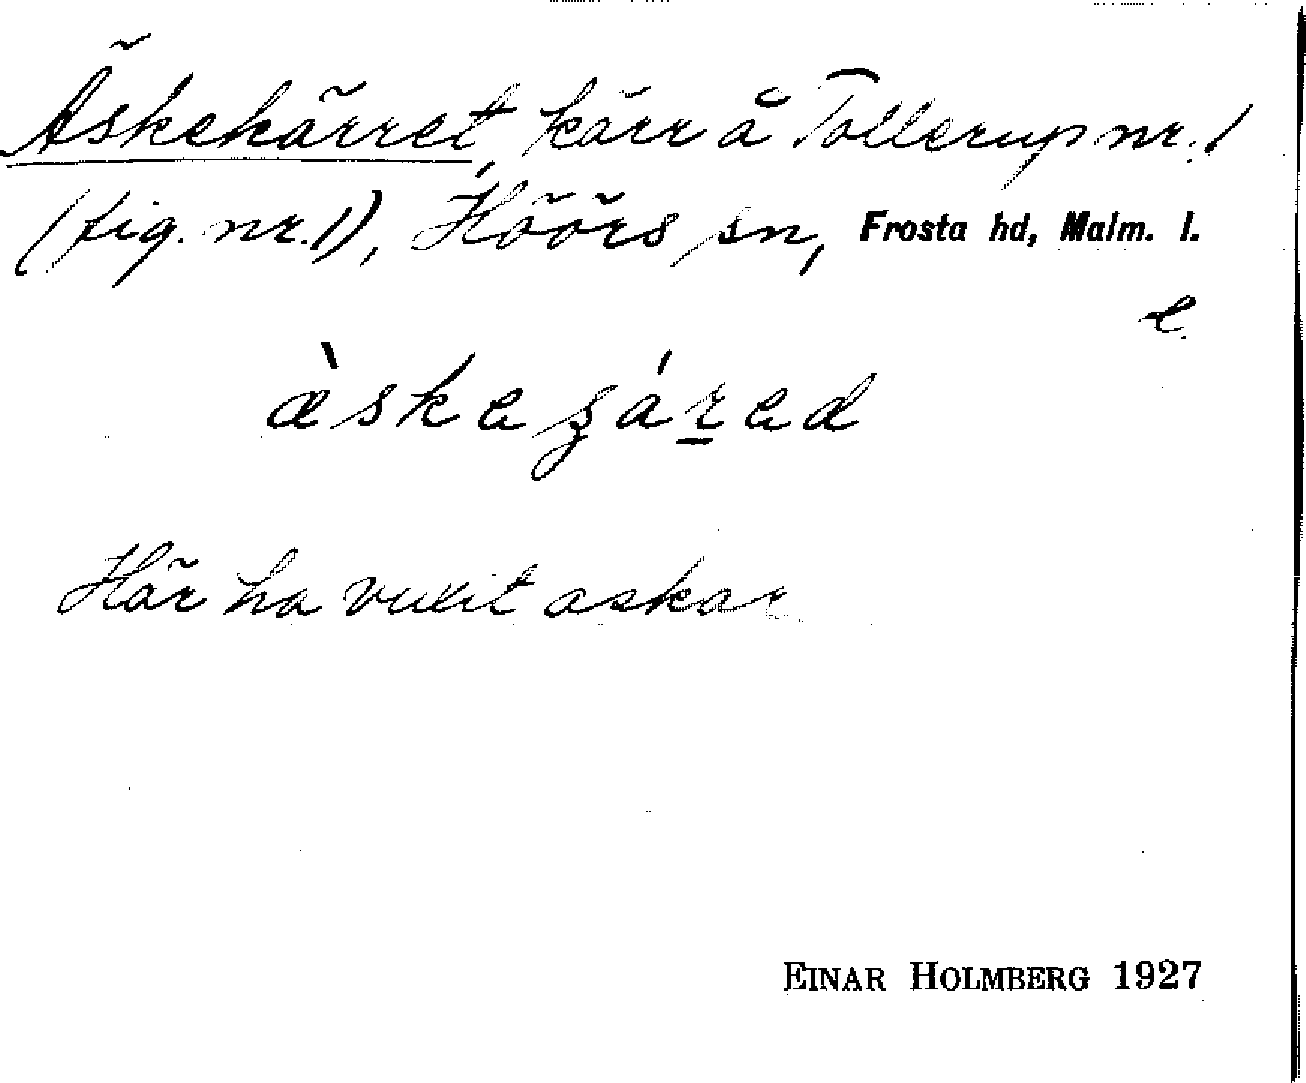 Äskekärret, kärr å Tollerup nr. 1
(fig. nr. 1), Höörs sn, Frosta hd, Malm. l.
e.
Här ha vuxit askar
EINAR HOLMBERG 1927